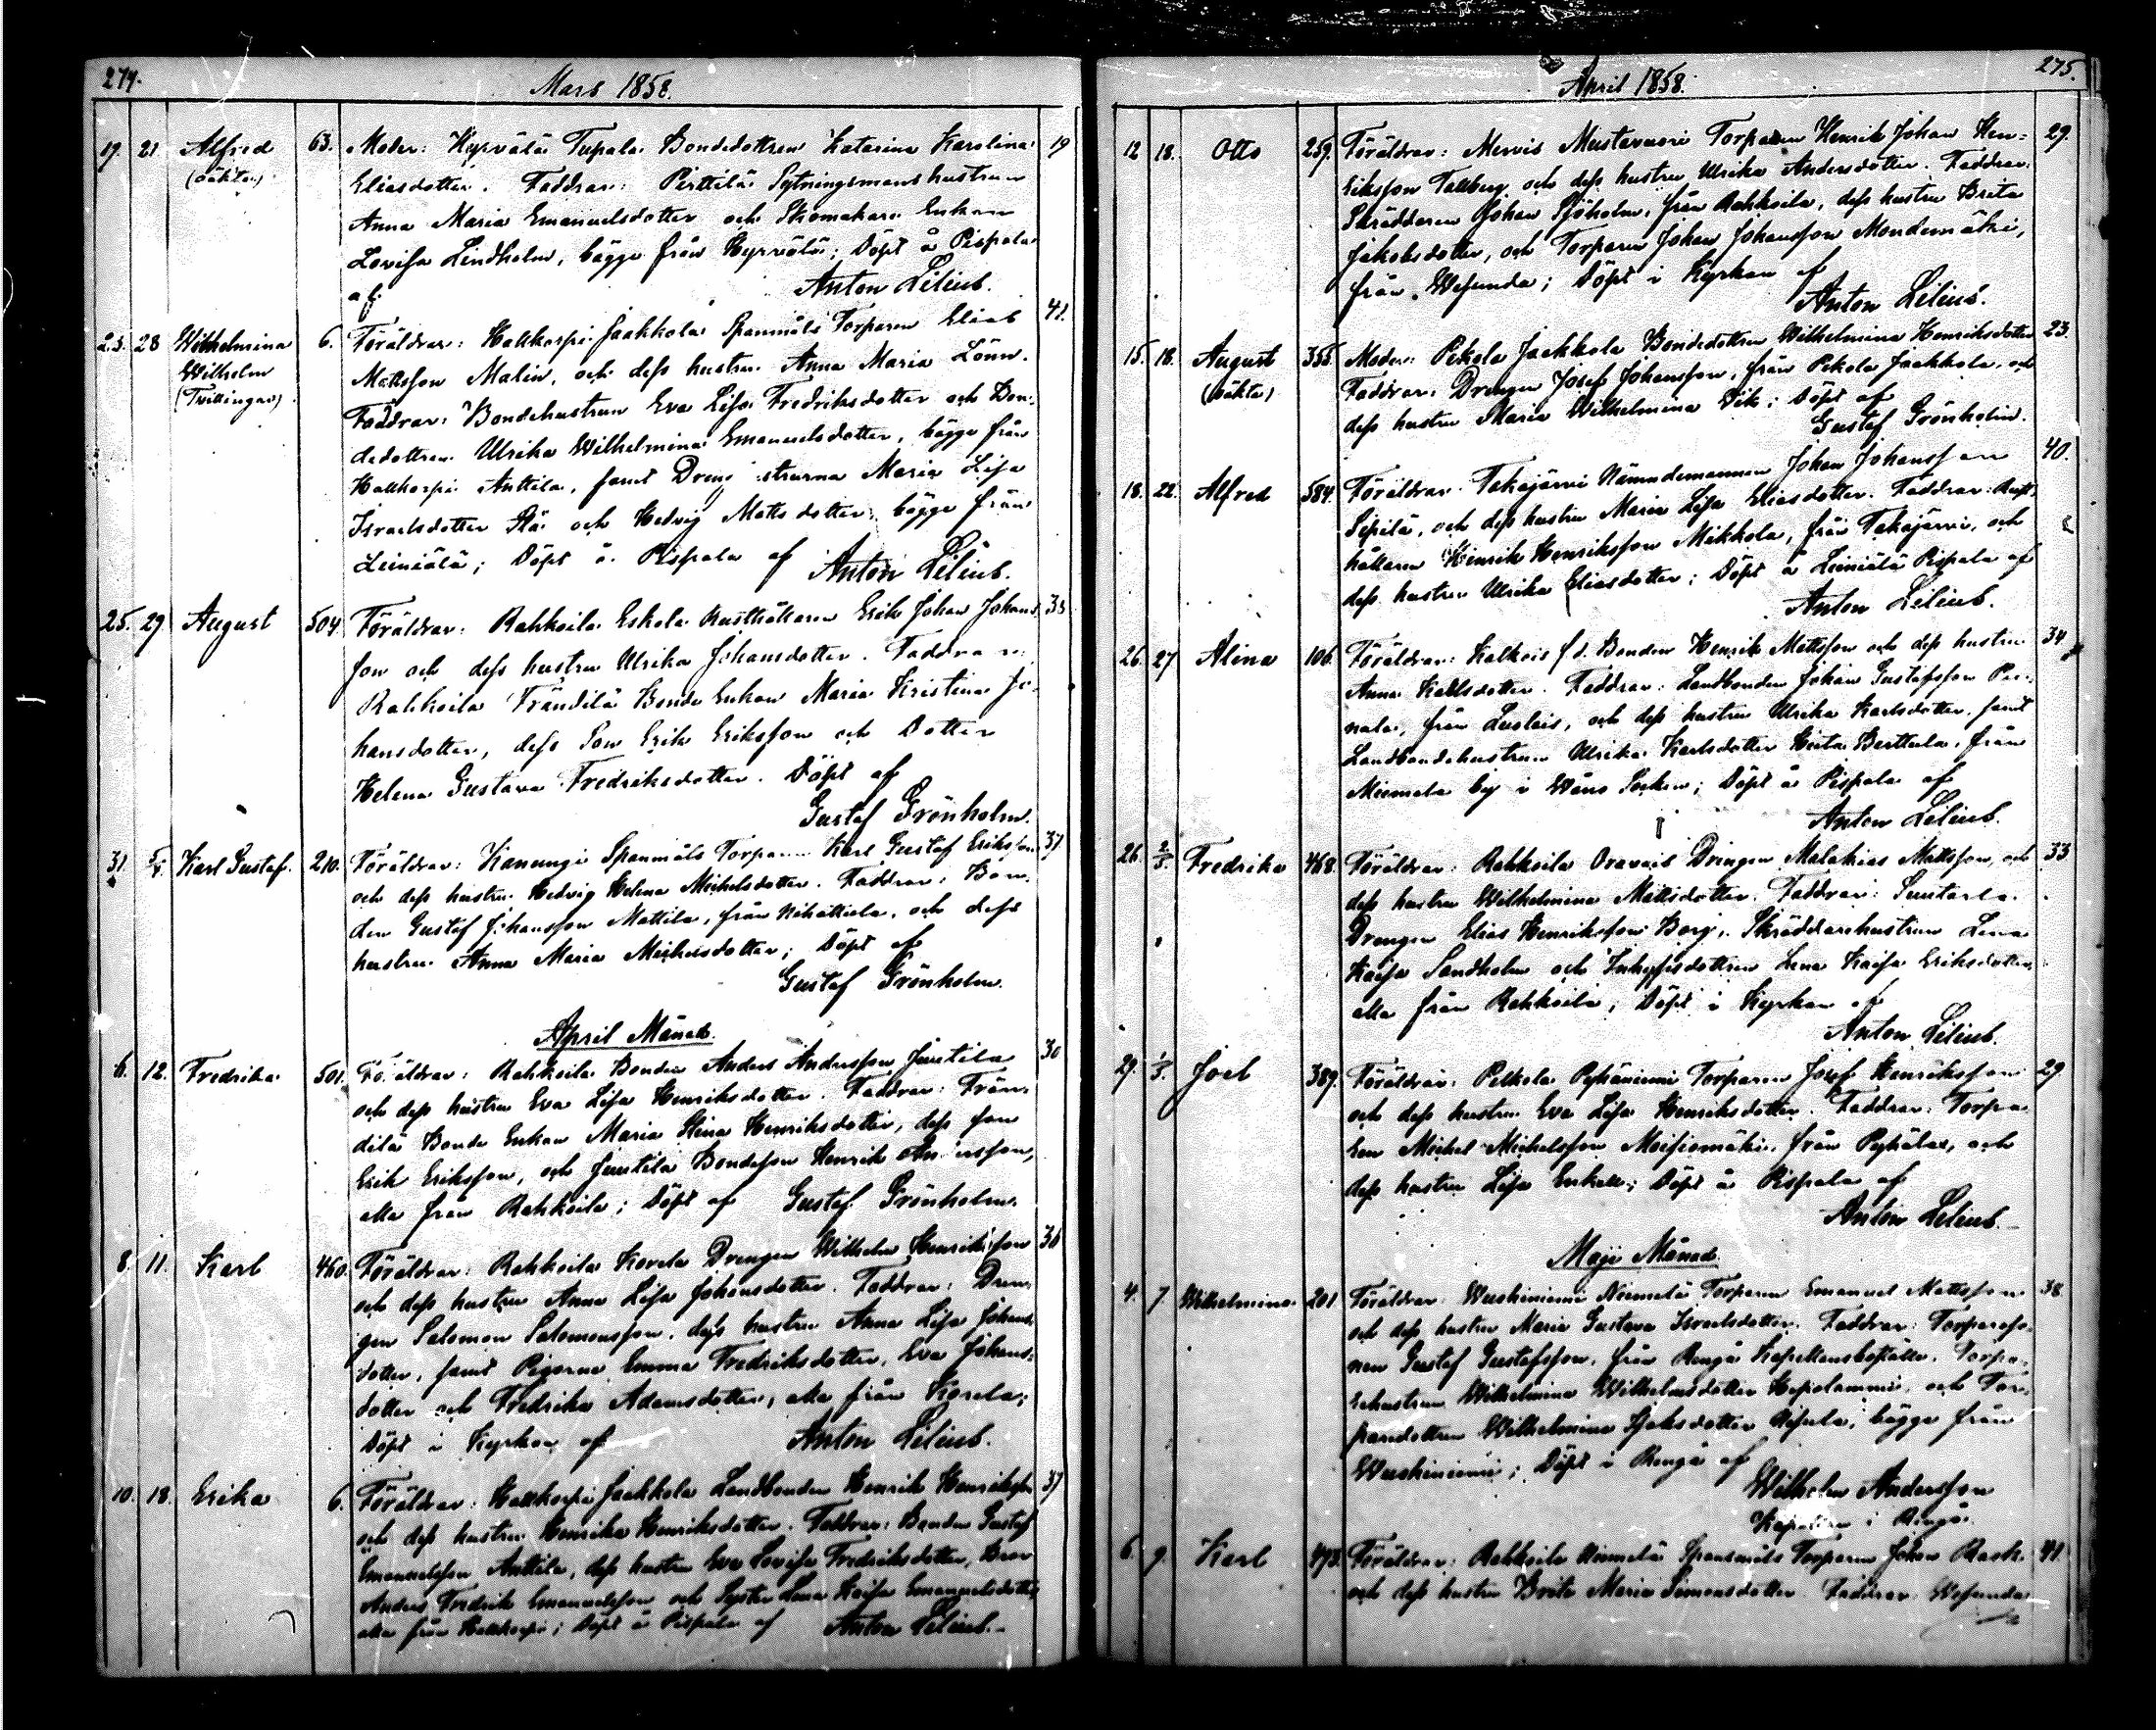 274.
Mars 1858.
19. 21 Alfred 63. Moder: Hyrvälä Tupala Bondedottren Katarina Karolina 19
(oäkta) Eliasdotter. Faddrar: Perttilä Sytningsmans hustrun
Anna Maria Emanuelsdotter och Skomakare Enkan
Lovisa Lindholm, bägge från Hyrvälä; Döpt å Pispala
af Anton Lilius.
23. 28 Wilhelmina 6. Föräldrar: Hallkorpi Jaakkola Spanmåls Torparen Elias 41.
Wilhelm Mattsson Malin, och dess hustru Anna Maria Lönn.
(Tvillingar) Faddrar: Bondehustrun Eva Lisa Fredriksdotter och Bon-
dedottren Ulrika Wilhelmina Emanuelsdotter, bägge från
Hallkorpi Anttila, samt Dreng strurna Maria Lisa
Israelsdotter och Hedvig Mattsdotter, bägge från
Leiniälä; Döpt å Pispala af Anton Lilius.
25. 29 August 504. Föräldrar: Rahkoila Eskola Rusthållaren Erik Johan Johans- 33
son och dess hustru Ulrika Johansdotter. Faddrar:
Rahkoila Frändilä Bonde Enkan Maria Kristina Jo-
hansdotter, dess Son Erik Eriksson och Dotter
Helena Gustava Fredriksdotter. Döpt af
Gustaf Grönholm.
31. 5/4 Karl Gustaf. 210. Föräldrar: Kanungi Spanmåls Torparen Karl Gustaf Eriksson 37
och dess hustru Hedvig Helena Michelsdotter. Faddrar: Bon-
den Gustaf Johansson Mattila, från Nihattula, och dess
hustru Anna Maria Michelsdotter; Döpt af
Gustaf Grönholm.
April Månad.
6. 12. Fredrika 501. Föräldrar: Rahkoila Bonden Anders Andersson Juntila 30
och dess hustru Eva Lisa Henriksdotter. Faddrar: Frän-
dilä Bonde Enkan Maria Stina Henriksdotter, dess son
Erik Eriksson, och Juntila Bondeson Henrik Andersson,
alla från Rahkoila; Döpt af Gustaf Grönholm.
8. 11. Karl 460. Föräldrar: Rahkoila Korela Drengen Wilhelm Henriksson 36
och dess hustru Anna Lisa Johansdotter. Faddrar: Dren-
gen Salomon Salomonsson, dess hustru Anna Lisa Johans-
dotter, samt Pigorna Emma Fredriksdotter, Eva Johans-
dotter och Fredrika Adamsdotter, alla från Korela;
Döpt i Kyrkan af Anton Lilius.
10. 18. Erika 6. Föräldrar: Hallkorpi Jaakkola Landbonden Henrik Henriksson 37
och dess hustru Henrika Henriksdotter. Faddrar: Bonden Gustaf
Emanuelsson Anttila, dess hustru Eva Lovisa Fredriksdotter, Bror
Anders Fredrik Emanuelsson och Syster Lena Kaisa Emanuelsdotter
alla från Hallkorpi; Döpt å Pispala af Anton Lilius.
275.
April 1858.
12 18. Otto 259. Föräldrar: Mervis Mustavuori Torparen Henrik Johan Hen- 29.
riksson Tallberg, och dess hustru Ulrika Andersdotter. Faddrar:
Skräddaren Johan Sjöholm, från Rahkoila, dess hustru Brita
Jakobsdotter, och Torparen Johan Johansson Mondemäki,
från Wesunda; Döpt i Kyrkan af
Anton Lilius.
15. 18. August 355. Moder: Pekola Jaakkola Bondedottren Wilhelmina Henriksdotter 23.
(oäkta) Faddrar: Drengen Josef Johansson, från Pekola Jaakkola, och
dess hustru Maria Wilhelmina Vik; Döpt af
Gustaf Grönholm.
18. 22. Alfred 584. Föräldrar: Takajärvi Nämndemannen Johan Johansson 40.
Sipilä, och dess hustru Maria Lisa Eliasdotter. Faddrar: Rust-
hållaren Henrik Henriksson Mikkola, från Takajärvi, och
dess hustru Ulrika Eliasdotter; Döpt å Leiniälä Pispala af
Anton Lilius.
26. 27 Alina 106. Föräldrar: Kalkois f.d. Bonden Henrik Mattsson och dess hustru 34
Anna Karlsdotter. Faddrar: Landbonden Johan Gustafsson
från Luolais, och dess hustru Ulrika Karlsdotter, samt
Landbondehustrun Ulrika Karlsdotter Berttula, från
Miemala by i Wånå Socken; Döpt å Pispala af
Anton Lilius.
26. 2/5. Fredrika 468. Föräldrar: Rahkoila Oravais Drengen Malakias Mattsson, och 33
dess hustru Wilhelmina Mattsdotter. Faddrar: Suntarla
Drengen Elias Henriksson Borg, Skräddarehustrun Lena
Kaisa Sandholm och Inhysesdottren Lena Kaisa Eriksdotter
alla från Rahkoila; Döpt i Kyrkan af
Anton Lilius.
29. 1/5. Joel 389. Föräldrar: Pelkola Torparen Josef Henriksson 29.
och dess hustru Eva Lisa Henriksdotter. Faddrar: Torpa-
ren Michel Michelsson Moisiomäki, från och
dess hustru Lisa Enkell; Döpt å Pispala af
Anton Lilius.
Maji Månad.
4. 7 Wilhelmina 201 Föräldrar: Wuohiniemi Niemelä Torparen Emanuel Mattsson 38
och dess hustru Maria Gustava Israelsdotter. Faddrar: Torpareso-
nen Gustaf Gustafsson, från Rengå Kapellansboställe, Torpa-
rehustrun Wilhelmina Wilhelmsdotter och Tor-
paredottren Wilhelmina bägge från
Wuohiniemi; Döpt i Rengå af
Wilhelm Andersson
Kapellan i Rengå.
6. 9. Karl 473. Föräldrar: Rahkoila Niemelä Spanmåls Torparen Johan Rask 41
och dess hustru Brita Maria Simonsdotter. Faddrar: Wesunda